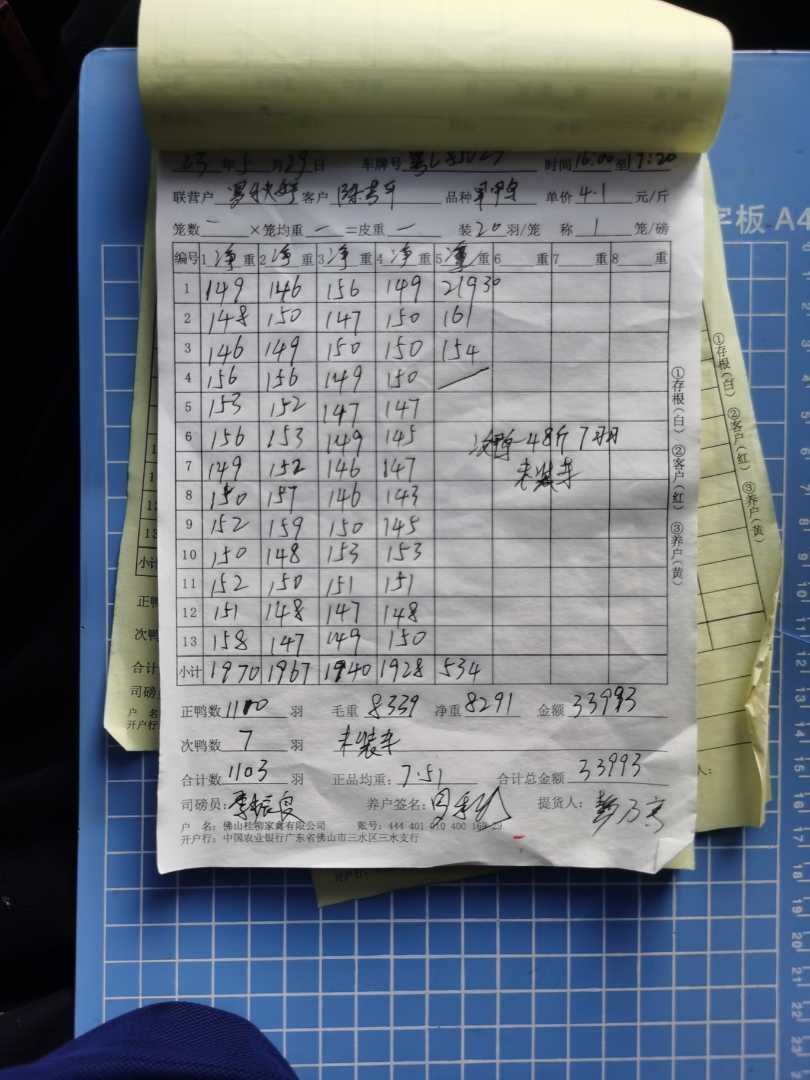 23 年 5 月 29 日 车牌号 时间 16:00 至 17:20
联营户 客户 陈 品种 单价 4.1 元/斤
笼数 一 ×笼均重 一 =皮重 一 装 20 羽/笼 称 1 笼/磅
编号 1 净 重 2 净 重 3 净 重 4 净 重 5 净 重 6 重 7 重 8 重
1 149 146 156 149 219 30
2 148 150 147 150 161
3 146 149 150 150 154
4 156 156 149 150
5 153 152 147 147
6 156 153 149 145 次鸭一48斤 7羽
7 149 152 146 147 未装车
8 150 157 146 143
9 152 159 150 145
10 150 148 153 153
11 152 150 151 151
12 151 148 147 148
13 158 147 149 150
小计 1970 1967 1940 1928 534
正鸭数 1100 羽 毛重 8339 净重 8291 金额 33993
次鸭数 7 羽 未装车
合计数 1103 羽 正品均重: 7.51 合计总金额 33993
司磅员: 李振良 养户签名: 提货人:
户 名: 佛山桂柳家禽有限公司 账号: 444 401 010 400 169 29
开户行: 中国农业银行广东省佛山市三水区三水支行
①存根(白) ②客户(红) ③养户(黄)
①存根(白) ②客户(红) ③养户(黄)
字板 A4
小计
正鸭
次鸭
合计
司磅
户 名
开户行